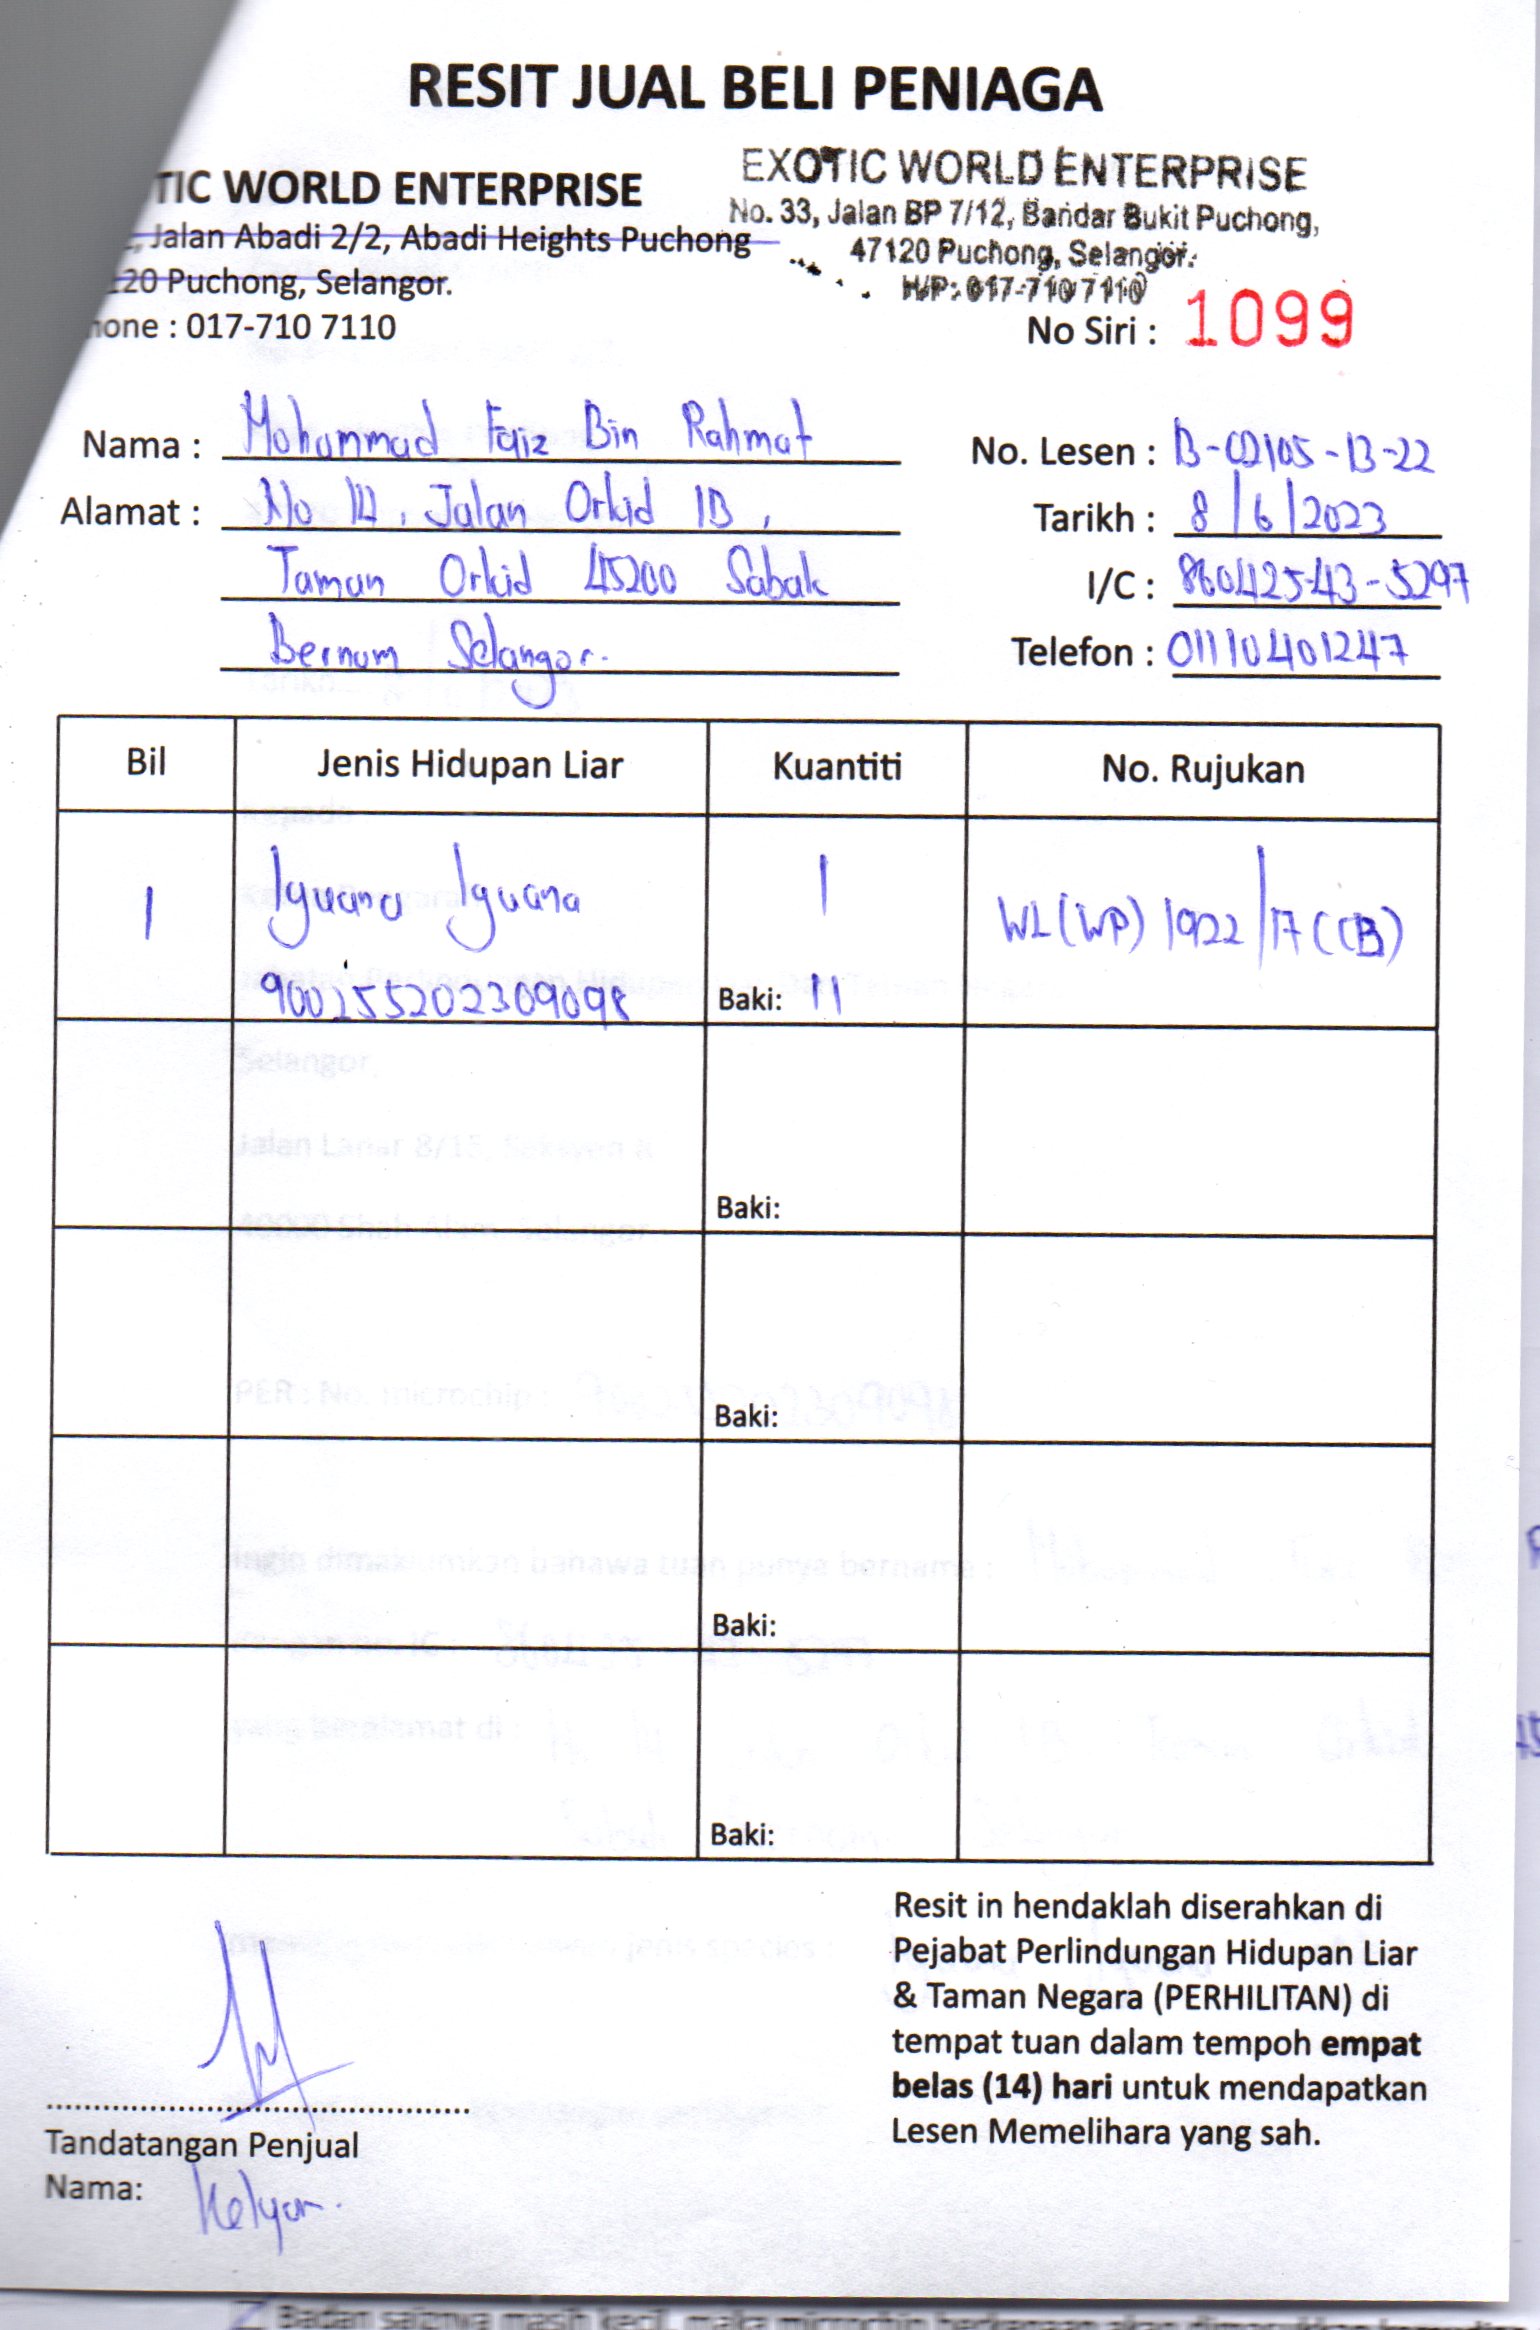 RESIT JUAL BELI PENIAGA
TIC WORLD ENTERPRISE
Jalan Abadi 2/2, Abadi Heights Puchong
120 Puchong, Selangor.
hone : 017-710 7110
EXOTIC WORLD ENTERPRISE
No. 33, Jalan BP 7/12, Bandar Bukit Puchong,
47120 Puchong, Selangor.
H/P: 017-710 7110
No Siri : 1099
Nama : Mohammad Faiz Bin Rahmat
Alamat : No 14, Jalan Orkid 1B,
Taman Orkid 45200 Sabak
Bernam Selangor.
No. Lesen : B-02105-13-22
Tarikh : 8/6/2023
I/C : 860425-43-5297
Telefon : 01110401247
Bil Jenis Hidupan Liar Kuantiti No. Rujukan
1 Iguana Iguana 1 WL(WP) 1922/17 (CB)
900255202309098 Baki: 11
Baki:
Baki:
Baki:
Baki:
Resit in hendaklah diserahkan di
Pejabat Perlindungan Hidupan Liar
& Taman Negara (PERHILITAN) di
tempat tuan dalam tempoh empat
belas (14) hari untuk mendapatkan
Lesen Memelihara yang sah.
Tandatangan Penjual
Nama: Kelyan.